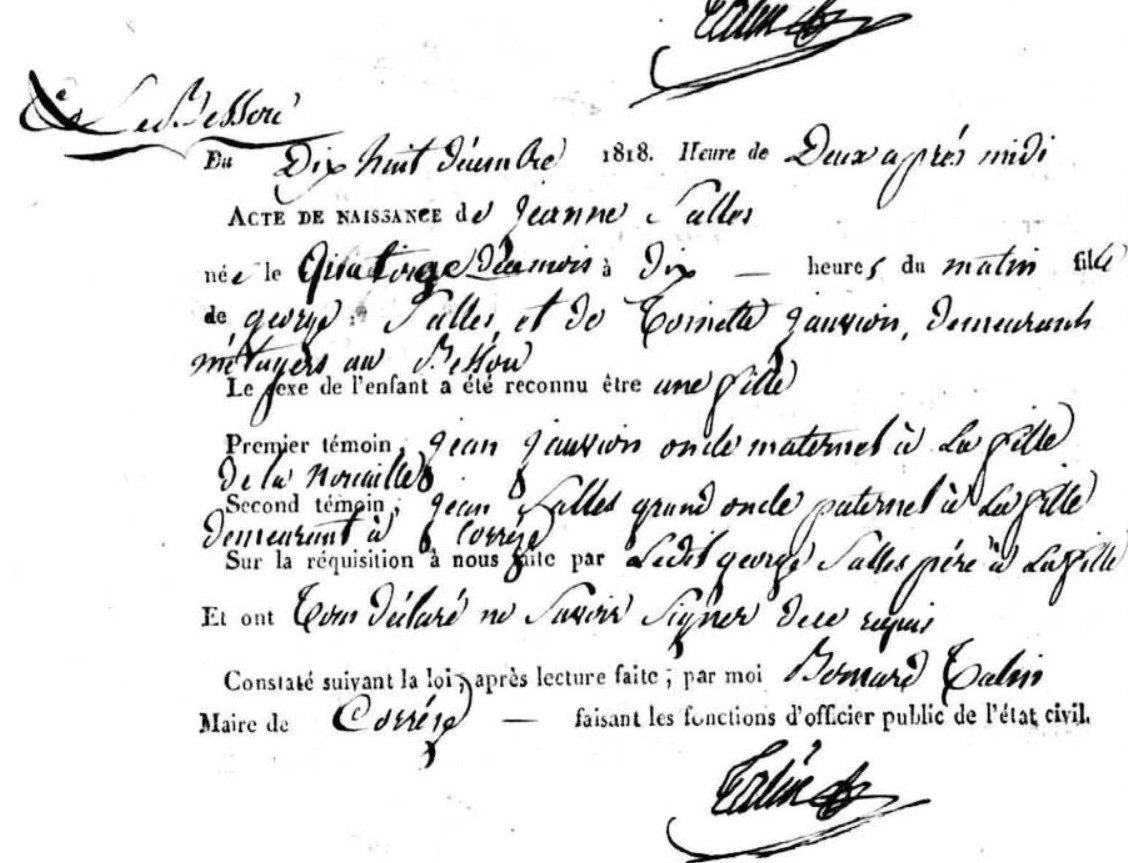 Talin
Le Bessou
Du Dix huit décembre 1818. Heure de Deux après midi
ACTE DE NAISSANCE de jeanne Salles
née le quatorze du mois à Dix — heures du matin fille
de george Salles, et de Toinette jauvion, demeurants
métayers au Bessou
Le sexe de l'enfant a été reconnu être une fille
Premier témoin, jean jauvion oncle maternel à La fille
de la
Second témoin, jean Salles grand oncle paternel à La fille
demeurant à Corrèze
Sur la réquisition à nous faite par Ledit george Salles père à La fille
Et ont Tous déclaré ne Savoir Signer de ce requis
Constaté suivant la loi, après lecture faite ; par moi Bernard Talin
Maire de Corrèze — faisant les fonctions d'officier public de l'état civil.
Talin